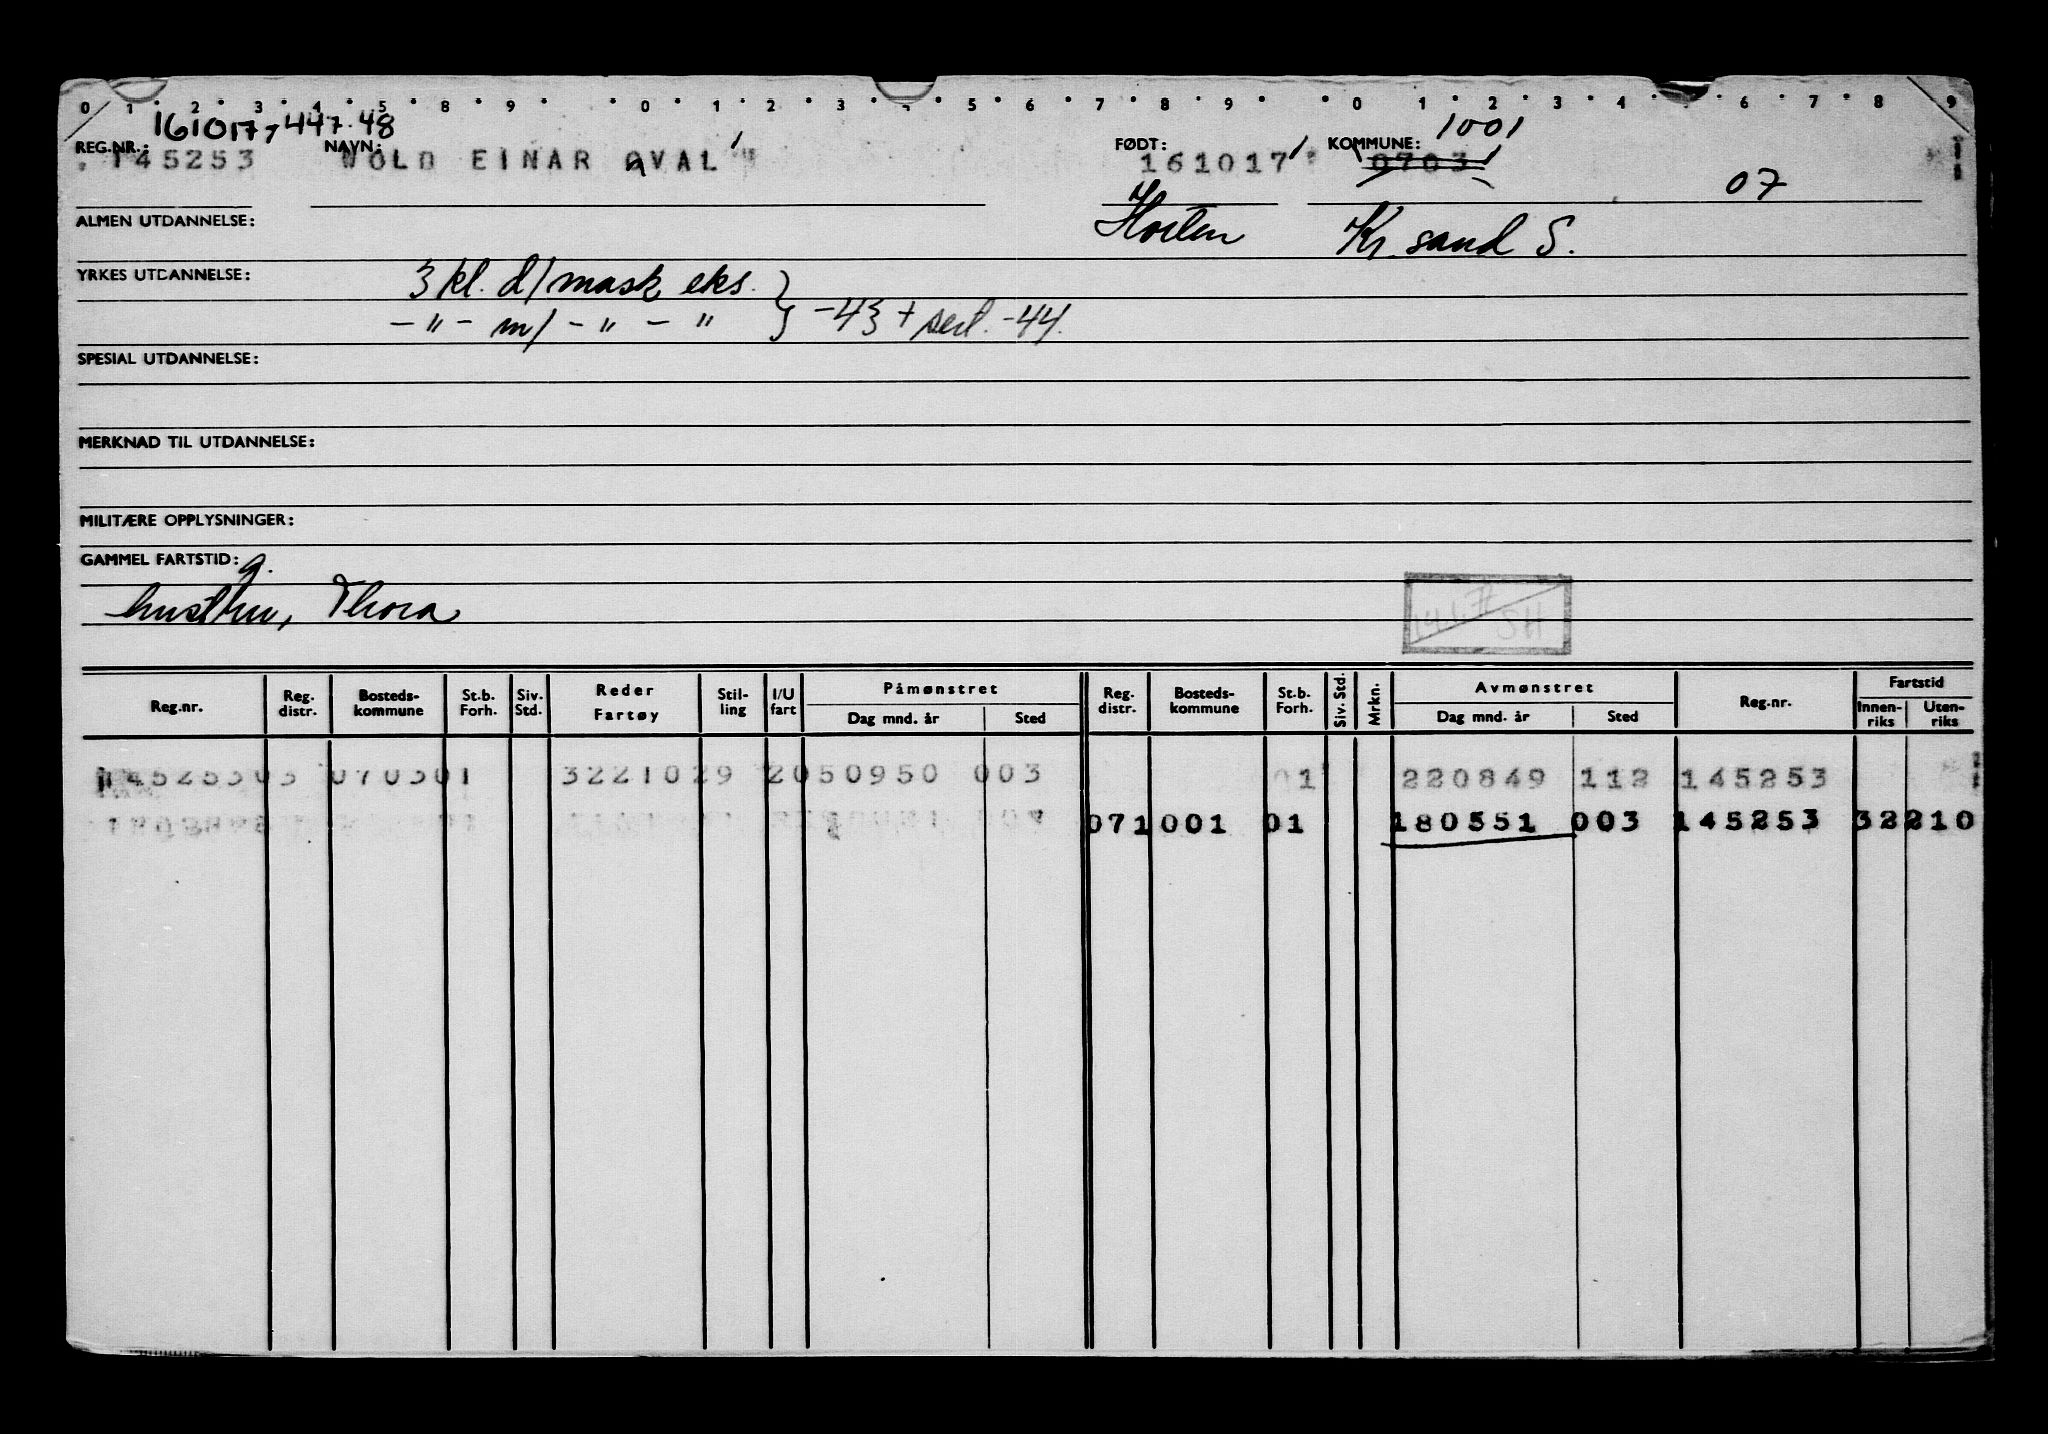 0 1 2 3 4 5 8 9 0 1 2 3 4 5 6 7 8 9 0 1 2 3 4 6 7 8 9
161017, 447.48 1001
REG.NR.: NAVN: FØDT: KOMMUNE:
145253 WOLD EINAR QVAL 161017 0703
07
ALMEN UTDANNELSE: Horten Kr. sand S.
YRKES UTDANNELSE: 3 kl. d/mask eks.
– " – m/ – " – " } –43 + sert. –44.
SPESIAL UTDANNELSE:
MERKNAD TIL UTDANNELSE:
MILITÆRE OPPLYSNINGER:
GAMMEL FARTSTID:
g.
husthu, Thora
SH
Reg.nr. Reg. distr. Bosteds- kommune St.b. Forh. Siv. Std. Reder Fartøy Stil- ling I/U fart Påmønstret Dag mnd. år Sted Reg. distr. Bosteds- kommune St.b. Forh. Siv. Std. Mrkn. Avmønstret Dag mnd. år Sted Reg.nr. Fartstid Innen- riks Uten- riks
145253 03 0703 01 32210 29 2 050950 003 01 220849 112 145253
07 1001 01 180551 003 145253 32210